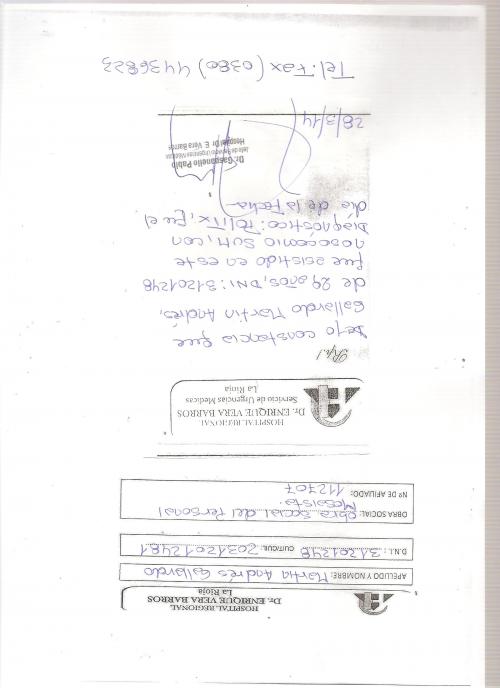 HOSPITAL REGIONAL
Dr. ENRIQUE VERA BARROS
La Rioja
APELLIDO Y NOMBRE: Martin Andrés Gallardo
D.N.I.: 31201248 CUIT/CUIL: 20312012481
OBRA SOCIAL: obra social del Personal
Mosaista.
Nº DE AFILIADO: 112707
HOSPITAL REGIONAL
Dr. ENRIQUE VERA BARROS
Servicio de Urgencias Medicas
La Rioja
Dejo constancia que
Gallardo Martin Andrés,
de 29 años, DNI: 31201248
fue asistido en este
nosocomio SUM, con
Diagnóstico: PoliTx, en el
día de la Fecha
Dr. Gaspanello Pablo
Jefe de Servicio Urgencias Médicas
Hospital Dr E. Vera Barros
28/3/14
Tel. Fax (0380) 4436823